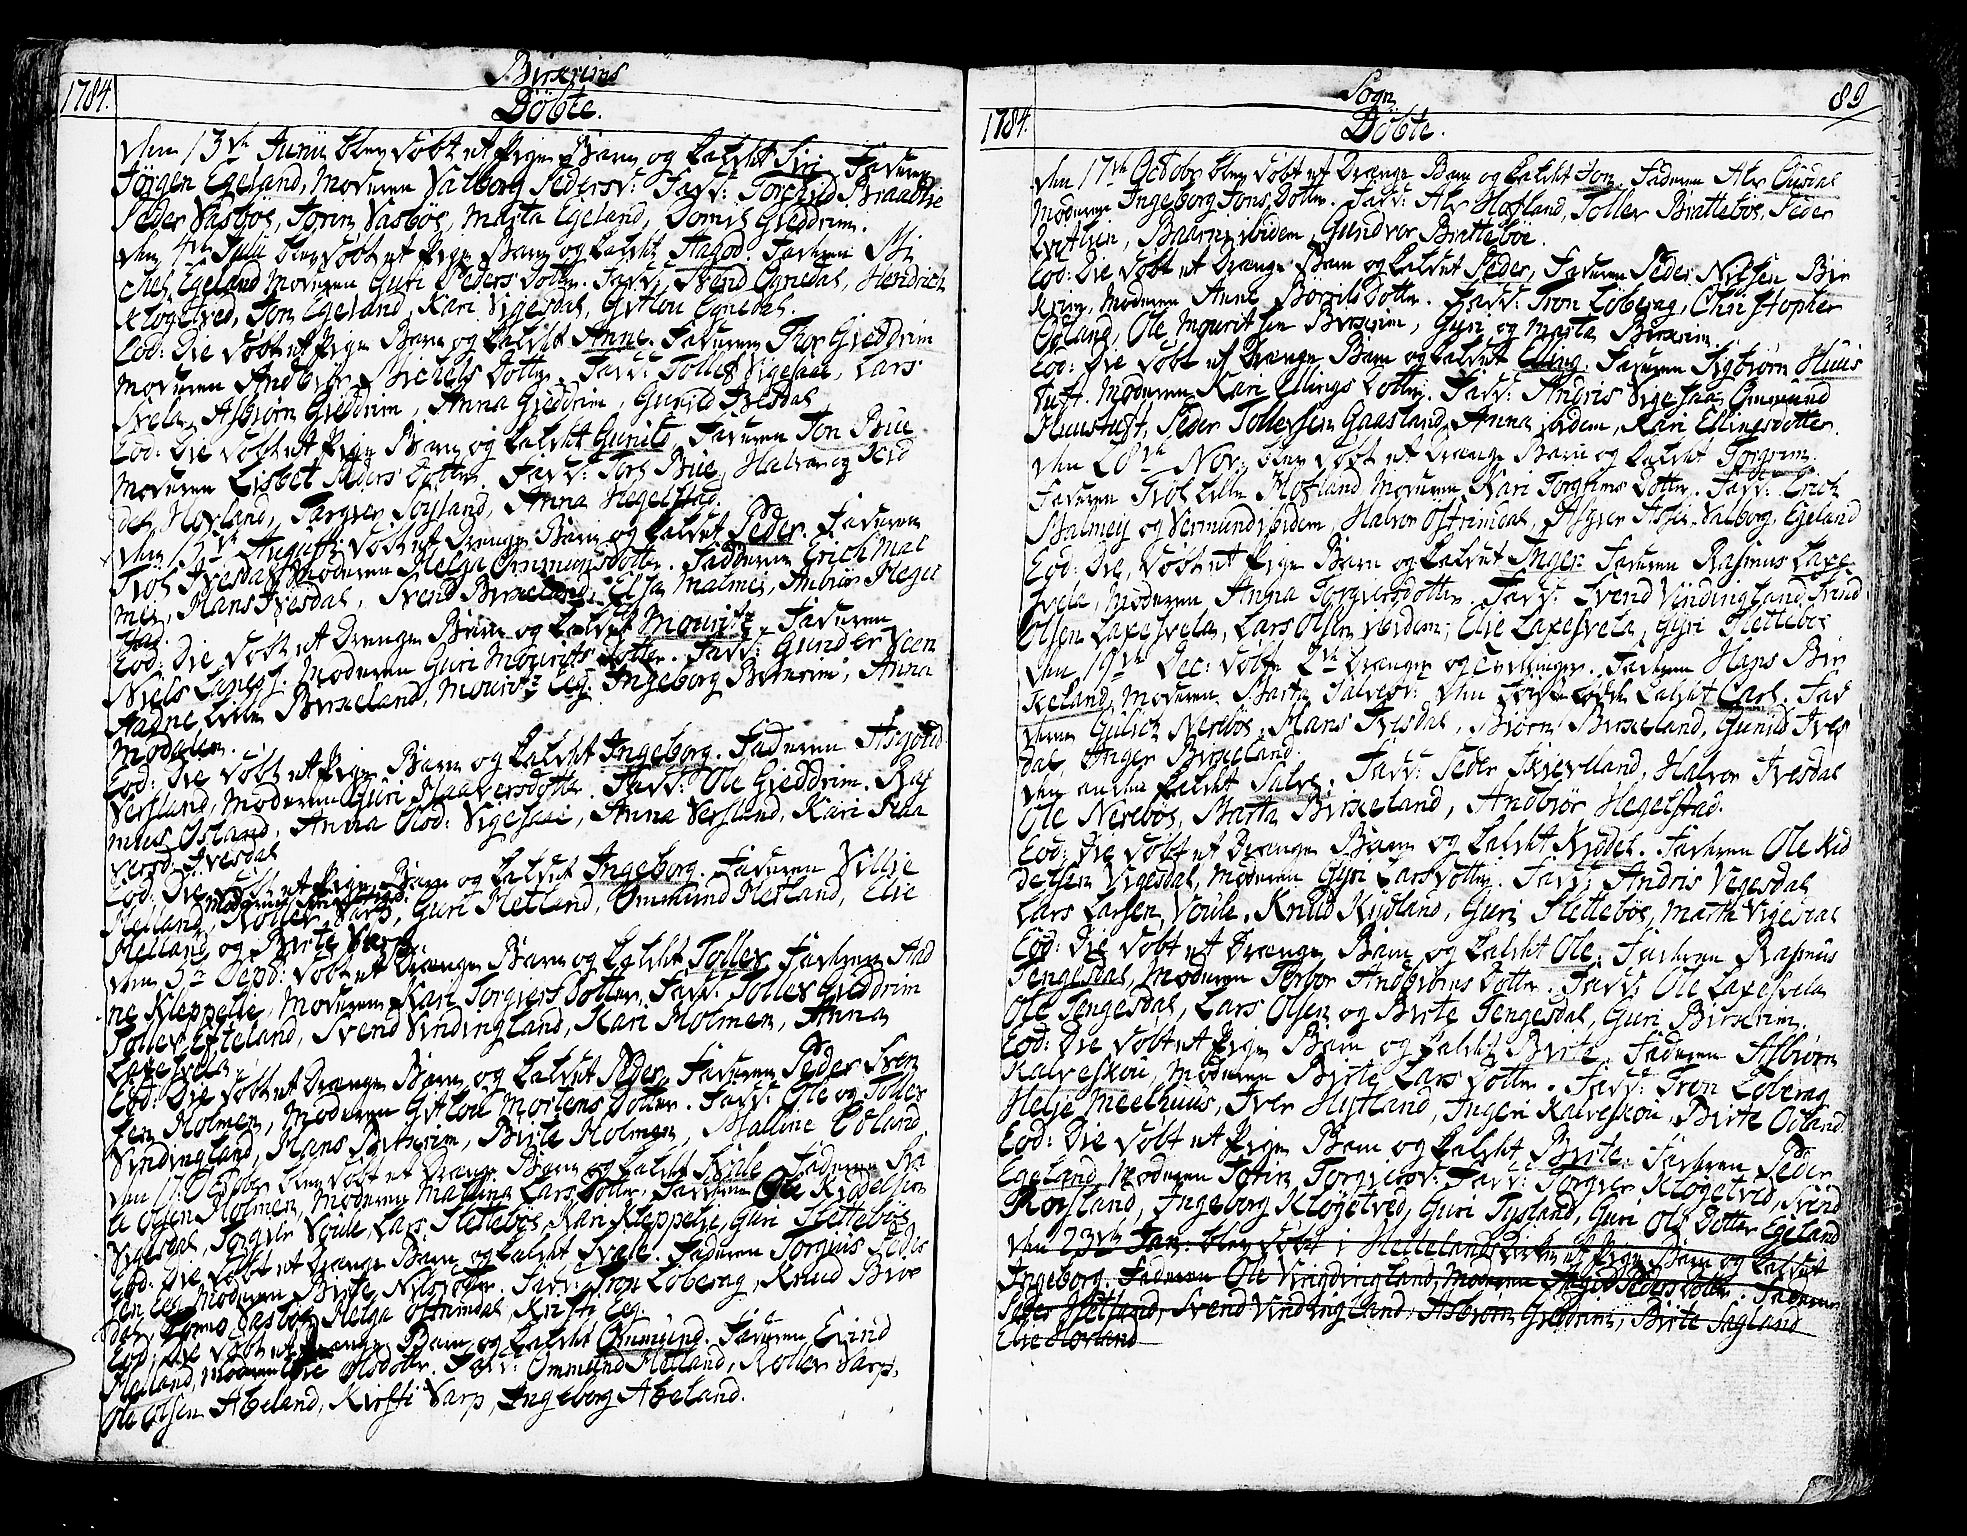 1784.
Birkrims
Döbte.
den 13de Junii blev döbt et Pige Barn og kaldet Siri Faderen
Jörgen Egeland, Moderen Valborg Pedersd: Fadd: Torchild Braadlie
Peder Vasböe, Torin Vasböe, Marta Egeland, Giedrim.
den 4de Julii blev döbt et Pige Barn og kaldet Aagod. Faderen Mi
chel Egeland Moderen Guri Peders Dotter. Fadd: Svend Egnedal, Hendrich
Klogetved, Jon Egeland, Kari Vigesdal, Gitlou Egnedal.
Eod: Die döbt et Pige Barn og kaldet Anne. Faderen Thor Gieddrim
Moderen Andbiör Michels Dotter. Fadd: Tollef Vigesaae, Lars
Svela, Asbiörn Gieddrim, Anna Gieddrim, Gunild Ivesdal
Eod: Die döbt et Pige Barn og kaldet Gunild, Faderen Jon Bue
Moderen Lisbet Peders Dotter. Fadd: Bue, Halvor og
Hovland, Torgier Soyland, Anna Hegelstad.
den August: döbt et Drænge Barn og kaldet Peder. Faderen
Ivesdal Moderen Helga Ommunsdotter. Fadderne Erich Mal
mei, Hans Ivesdal, Svend Birkeland, Elsa Malmei, Anbiör Hegel
stad.
Eod: Die döbt et Drænge Barn og kaldet Mouritz Faderen
Niels Moderen Guri Mourits Dotter. Fadd: Gunder Veen
Aadne Lille Birkeland, Mouritz Eeg. Ingeborg Birkrim, Anna
Modalen.
Eod: Die döbt et Pige Barn og kaldet Ingeborg. Faderen Asgoud
Versland, Moderen Guri Haaversdotter. Fadd: Ole Gieddrim. Ras
mus Osland, Anna Vigesaae, Anna Versland, Kari
Ivesdal
Eod: Die döbt et Pige Barn og kaldet Ingeborg. Faderen Villie
Hetland, Varp, Guri Hetland, Ommund Hetland, Elie
Hetland og Birte Varp.
den 5te Sepd: döbt et Drænge Barn og kaldet Tollev Faderen Aad
ne Kleppelie, Moderen Kari Torgiers Dotter, Fadd: Tollev Gieddrim
Tollev Efteland, Svend Vindingland, Kari Holmen, Anna
Laxesvela.
Eod: Die döbt et Drænge Barn og kaldet Peder Faderen Peder Sven
sen Holmen, Moderen Gitlou Mortens Dotter. Fadd: Ole og Tollev
Vindingland, Hans Birkrim, Birte Holmen, Malline
den Octobr blev döbt et Drænge Barn og kaldet Faderen
Olsen Holmen, Moderen Malling Lars Dotter. Fadderne Ole Kiddelsen
Vigesdal, Torgier Voule, Lars Sletteböe, Kari Kleppelie, Guri Slettebö
Eod: Die döbt et Drænge Barn og kaldet Svale. Faderen Torgius Peder
sen Eeg Moderen Birte Nilsdotter. Fadd: Tron Löberg, Knud Broe
Vasböe, Helga Ostrimdal, Kirsti Eeg.
Eod: Die döbt et Drænge Barn og kaldet Ommund. Faderen Eivind
Hetland, Moderen Olsdotter. Fadd: Ommund Hetland, Varp,
Ole Olsen Aheland, Kirsti Varp, Ingeborg Aheland.
Sogn
89
1784.
Döbte.
den 17de Octobr blev döbt et Drænge Barn og kaldet Jon. Faderen
Moderen Ingeborg Jons Dotter. Fadd: Hofland, Tollev Brattebö, Peder
ibidem, Gundvor Bratteböe.
Eod: Die döbt et Drænge Barn og kaldet Peder, Faderen Peder Nilsen Bir
krim, Moderen Anne Dotter. Fadd: Tron Löberg, Christopher
Ogland, Ole Mouritsen Birkrim, Gyri og Marta Birkrim.
Eod: Die döbt et Drænge Barn og kaldet Elling. Faderen Sigbiörn Huus
tuft. Moderen Kari Ellings Dotter. Fadd: Andris Vigesaa, Ommund
Huustuft, Peder Tollevsen Gaasland, Anna ibidem, Kari Ellingsdotter.
den 28de Nov: blev döbt et Drænge Barn og kaldet Torgrim.
Faderen Lille Hofland Moderen Kari Torgrims Dotter. Fadd: Erich
Malmey og Vermund ibidem, Halvor Ostrimdal, Valborg Egeland
Eod: Die, döbt et Pige Barn og kaldet Inger. Faderen Rasmus Laxe
svela, Moderen Anna Torgiersdotter. Fadd: Svend Vindingland, Svend
Olsen Laxesvela, Lars Olsen ibidem, Elie Laxesvela, Gyri Slettebö
den 19de Dec: döbte 2de Drænge og Tvillinger. Faderen Hans Bir
keland, Moderen Marta kaldet Carl. Fad
derne Gulich Nereböe, Hans Ivesdal, Biörn Birkeland, Gunild Ives
dal, Inger Birkeland.
den anden kaldet Salve. Fadd: Peder Skievelland, Halvor Ivesdal
Ole Nereböe, Marta Birkeland, Andbiör Hegelstad.
Eod: Die döbt et Drænge Barn og kaldet Kiddel. Faderen Ole Kid
delsen Vigesdal, Moderen Gyri Lars Dotter. Fadd: Andris Vegesdal
Lars Larsen Voule, Knud Kydland, Guri Slettebö, Marta Vigesdal
Eod: Die döbt et Drænge Barn og kaldet Ole. Faderen Rasmus
Tengesdal, Moderen Torbor Andbiöns Dotter. Fadd: Ole Laxesvela
Ole Tengesdal, Lars Olsen og Birte Tengesdal, Guri Birkrim.
Eod: Die döbt et Pige Barn og kaldet Birte. Faderen Asbiörn
Kalveskou, Moderen Birte Lars Dotter. Fadd: Tron Löberg
Helje Meelhuus, Iver Hytland, Ingeri Kalveskou, Birte Ocland.
Eod: Die döbt et Pige Barn og kaldet Birte. Faderen Peder
Egeland Moderen Torin Torgiersd: Fadd: Torgier Klogetved, Svend
Rovsland, Ingeborg Klogetved, Guri Tysland, Guri Ols Dotter Egeland
den 23de Jan: blev döbt i Hellelands Kirken et Pige Barn og kaldet
Ingeborg. Faderen Ole Vindingland, Moderen Peders Dotter. Fadderne
Peder Hetland, Svend Vindingland, Asbiörn Gieddrim, Birte Sagland
Elie Hovland